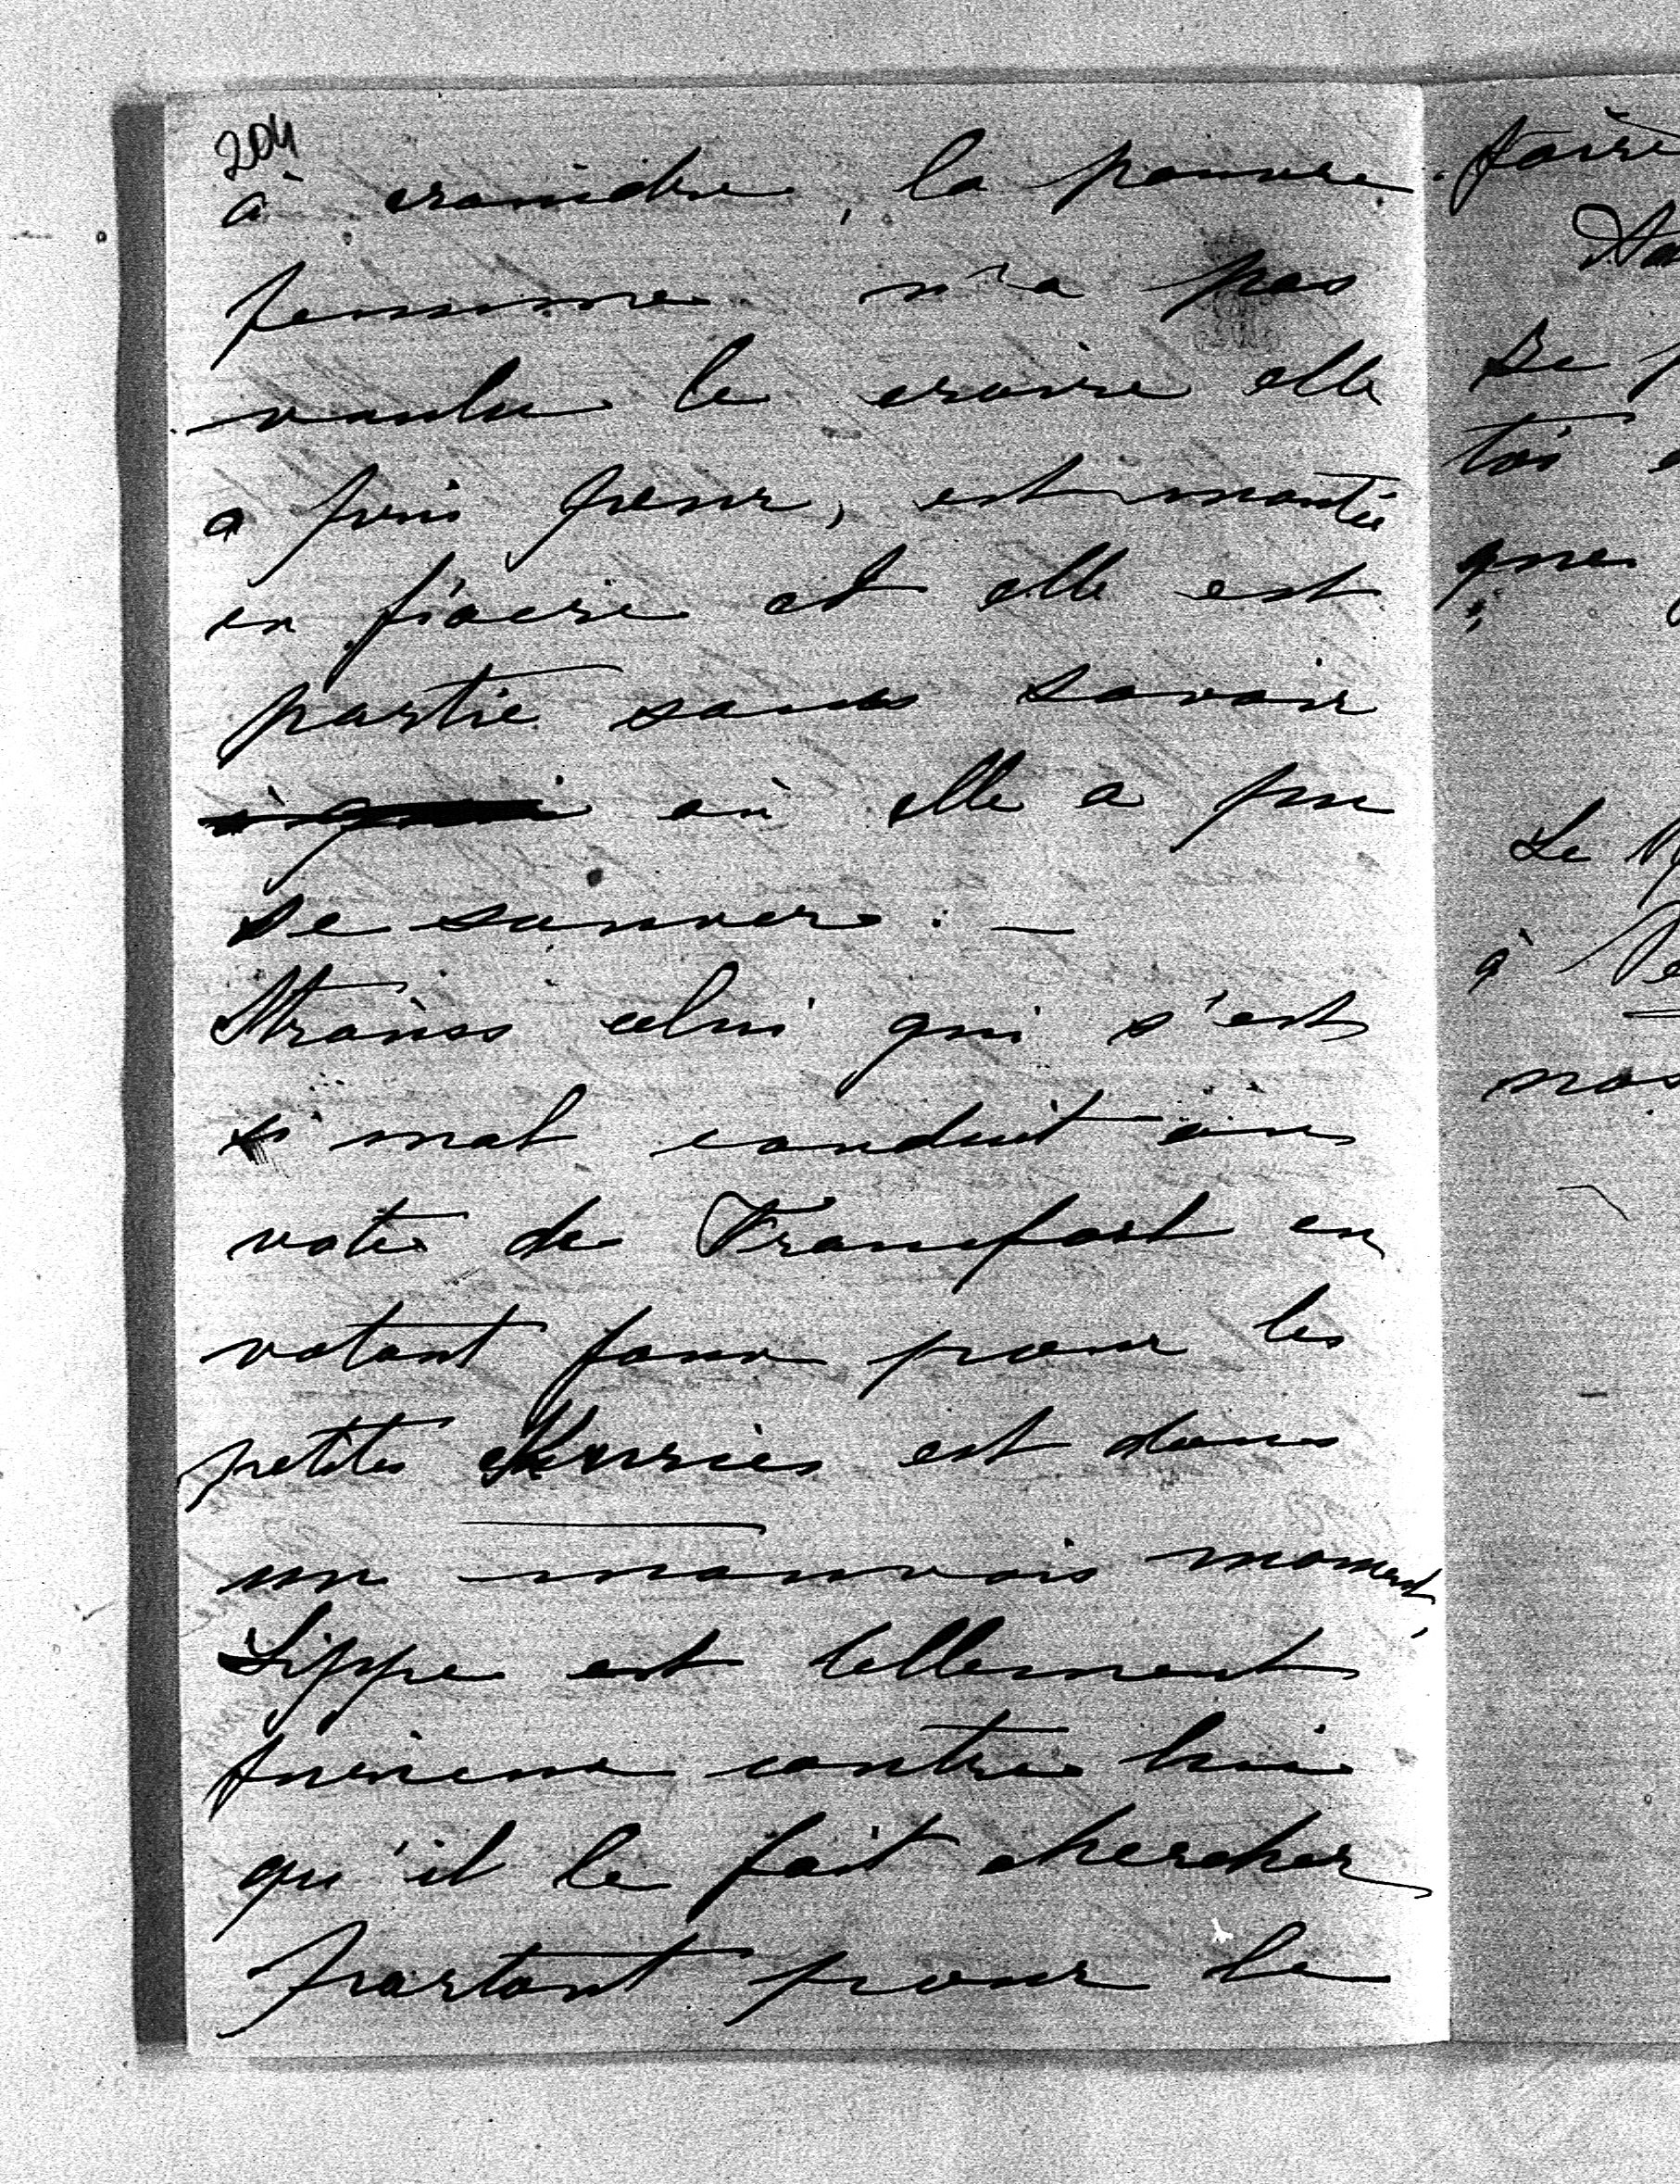 204
à craindre, la pauvre
femme n'a pas
voulu le croire elle
a pris peur, est montée
en fiacre et elle est
partie sans savoir
où elle a pu
se sauver. —
Strauss celui qui s'est
si mal conduit au
vote de Francfort en
votant pour les
petites est dans
un mauvais moment,
Lippe est tellement
furieux contre lui
qu'il le fait chercher
partout pour le